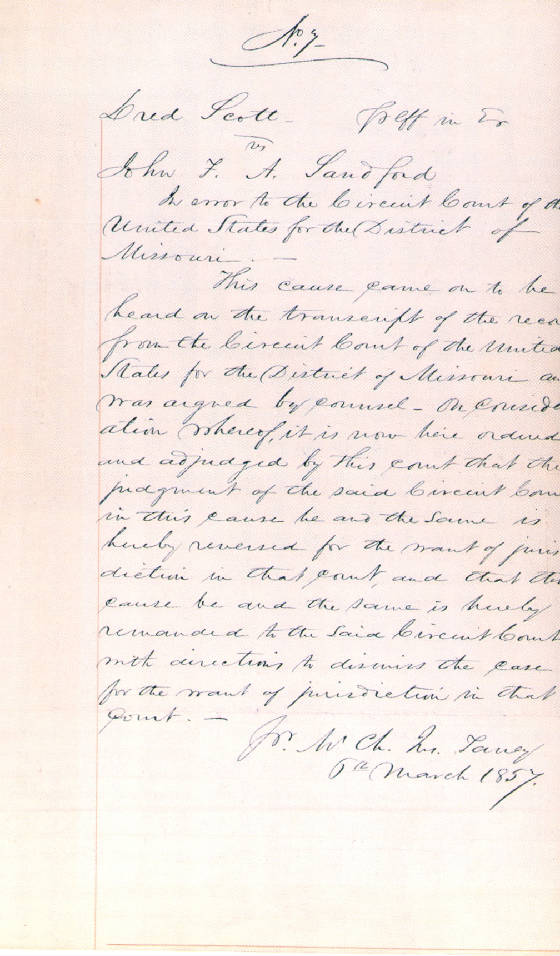 No. 7
Dred Scott - Plff in Er
vs
John F. A. Sandford
In error to the Circuit Court of the
United States for the District of
Missouri. —
This cause came on to be
heard on the transcript of the reco
from the Circuit Court of the United
States for the District of Missouri an
was argued by counsel - On consider
ation whereof, it is now here ordered
and adjudged by this court that the
judgment of the said Circuit Cour
in this cause be and the same is
hereby reversed for the want of juris
diction in that court, and that this
cause be and the same is hereby
remanded to the said Circuit Court
with directions to dismiss the case
for the want of jurisdiction in that
court. —
Mr. Ch. Jus. Taney
6th March 1857.